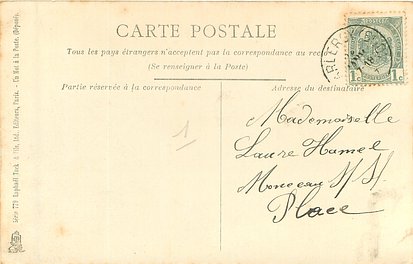 CARTE POSTALE
Tous les pays étrangers n'acceptent pas la correspondance au recto
(Se renseigner à la Poste)
Partie réservée à la correspondance
Adresse du destinataire
1
Mademoiselle
Laure Hamel
Monceau s/S.
Place
1c 1c
Série 779 Raphaël Tuck & fils, Ltd, Editeurs, Paris. - Un Mot à la Poste. (Déposé).